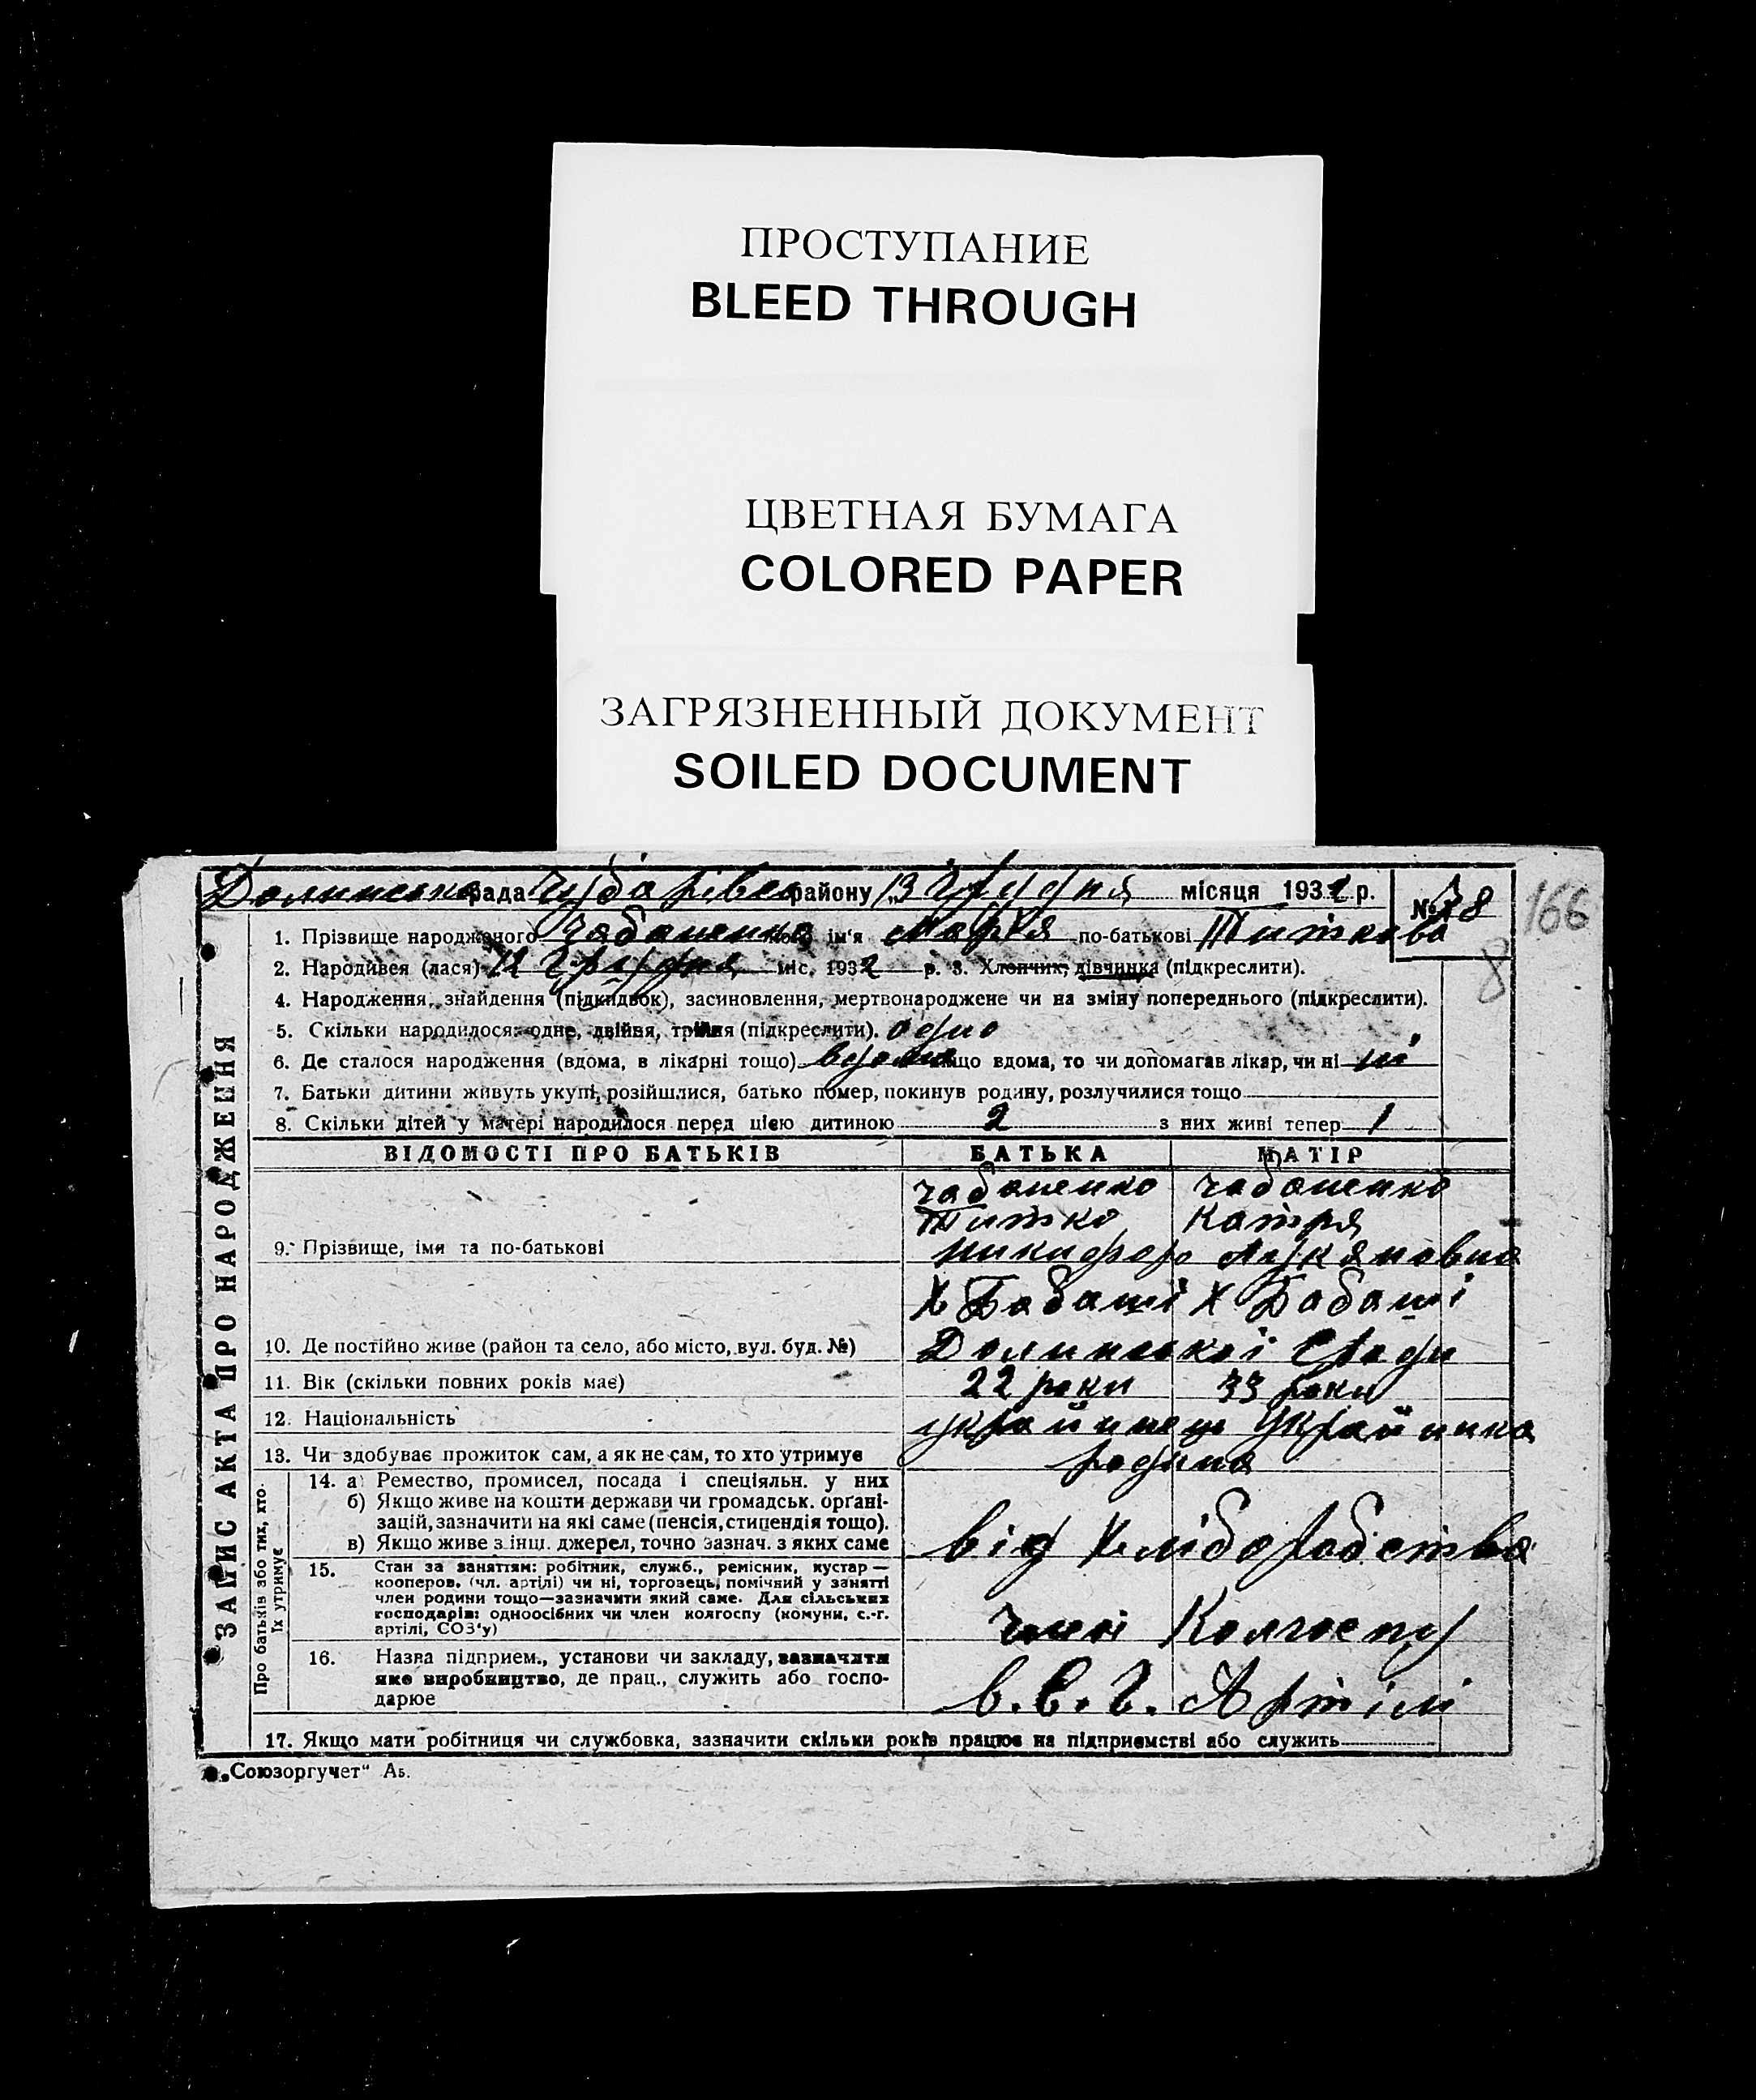 ПРОСТУПАНИЕ
BLEED THROUGH
ЦВЕТНАЯ БУМАГА
COLORED PAPER
ЗАГРЯЗНЕННЫЙ ДОКУМЕНТ
SOILED DOCUMENT
Долинська рада Чубарівсь району 13 Грудня місяця 1932 р. № 78
166
1. Прізвище народженого Чабаненко ім'я Марія по-батькові Титкова
2. Народився (лася) 12 Грудня міс. 1932 р. 3. Хлопчик, дівчинка (підкреслити).
8
4. Народження, знайдення (підкидьок), засиновлення, мертвонароджене чи на зміну попереднього (підкреслити).
5. Скільки народилося: одне, двійня, трійня (підкреслити). одно
6. Де сталося народження (вдома, в лікарні тощо) вдома якщо вдома, то чи допомагав лікар, чи ні ні
7. Батьки дитини живуть укупі, розійшлися, батько помер, покинув родину, розлучилися тощо
8. Скільки дітей у матері народилося перед цією дитиною 2 з них живі тепер 1
ЗАПИС АКТА ПРО НАРОДЖЕННЯ
ВІДОМОСТІ ПРО БАТЬКІВ БАТЬКА МАТІР
Чабаненко Чабаненко
Титко Катря
9. Прізвище, імя та по-батькові Никифор Лукяновна
Х Бабаші Х Бабаші
10. Де постійно живе (район та село, або місто, вул. буд. №) Долинської С Ради
11. Вік (скільки повних років має) 22 роки 33 роки
12. Національність українець Українка
13. Чи здобуває прожиток сам, а як не сам, то хто утримує родина
Про батьків або тих, хто їх утримує
14. а) Ремество, промисел, посада і спеціяльн. у них
б) Якщо живе на кошти держави чи громадськ. орґані-
зацій, зазначити на які саме (пенсія, стипендія тощо).
в) Якщо живе з інш. джерел, точно зазнач. з яких саме від Хліборобства
15. Стан за заняттям: робітник, служб., ремісник, кустар—
кооперов. (чл. артілі) чи ні, торговець, помічний у занятті
член родини тощо—зазначити який саме. Для сільських
господарів: одноосібних чи член колгоспу (комуни, с.-г.
артілі, СОЗ'у) Колгоспу
16. Назва підприєм., установи чи закладу, зазначити
яке виробництво, де прац., служить або госпо-
дарює Артілі
17. Якщо мати робітниця чи службовка, зазначити скільки років працює на підприємстві або служить
„Союзоргучет" Аб.